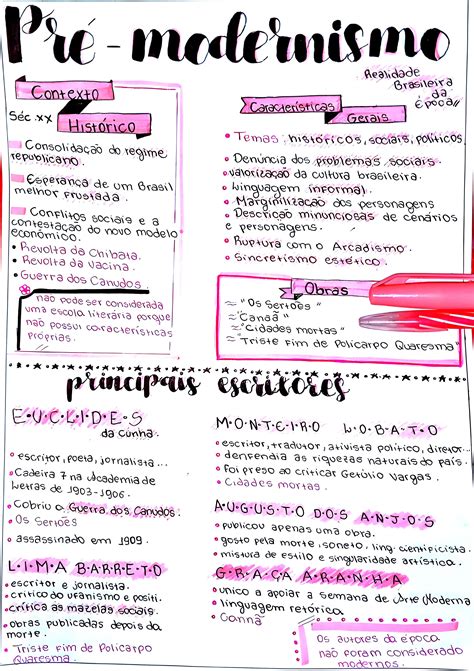 Pré-modernismo
Contexto
Histórico
Séc. XX
Consolidação do regime
republicano.
Esperança de um Brasil
melhor frustada.
Conflitos sociais e a
contestação do novo modelo
econômico.
• Revolta da Chibata.
• Revolta da Vacina.
• Guerra dos Canudos.
não pode ser considerada
uma escola literária porque
não possui características
próprias.
Realidade
Brasileira
da
época
Características
Gerais
• Temas históricos, sociais, políticos.
• Denúncia dos problemas sociais.
• valorização da cultura brasileira.
• Linguagem informal.
• Marginilização dos personagens
• Descrição minunciosas de cenários
e personagens.
• Ruptura com o Arcadismo.
• Sincretismo estético.
Obras
≈ "Os Sertões"
≈ "Canaã"
≈ "Cidades mortas"
≈ "Triste fim de Policarpo Quaresma"
principais escritores
E•U•C•L•I•D•E•S
da Cunha.
• escritor, poeta, jornalista...
• Cadeira 7 na Academia de
Letras de 1903-1906.
• Cobriu a Guerra dos Canudos.
• Os Sertões
• assassinado em 1909
L•I•M•A BARRETO
• escritor e jornalista.
• critico do ufanismo e positi.
• crítica as mazelas sociais.
• obras publicadas depois da
morte.
• Triste fim de Policarpo
Quaresma.
M•O•N•T•E•I•R•O L•O•B•A•T•O
• escritor, tradutor, ativista político, diretor...
• denfendia as riquezas naturais do país.
• foi preso ao criticar Getúlio Vargas.
• Cidades mortas.
A•U•G•U•S•T•O D•O•S A•N•J•O•S
• publicou apenas uma obra.
• gosto pela morte, soneto, ling. cientificista.
• mistura de estilo e singularidade artística.
G•R•A•Ç•A A•R•A•N•H•A
• unico a apoiar a semana de Arte Moderna
• linguagem retórica.
• Canaã
Os autores da época
não foram considerado
modernos.